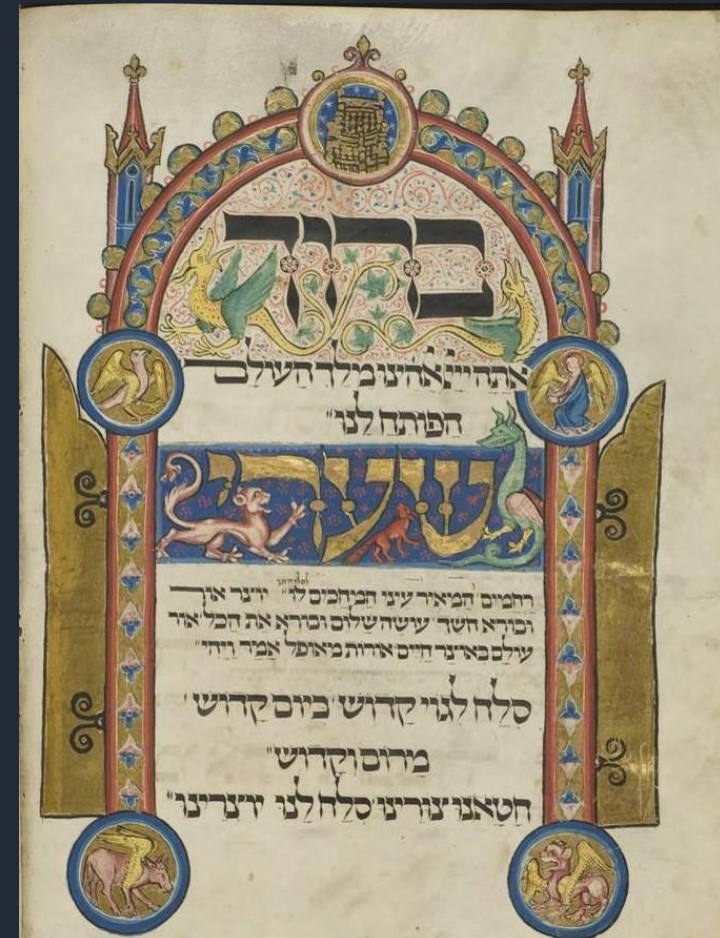 ברוך
אתה ייי אלהינו מלך העולם
הפותח לנו"
שערי
רחמים המאיר עיני המחכים לו" יוצר אור
ובורא חשך עושה שלום ובורא את הכל אור
עולם באוצר חיים אורות מאופל אמר ויהי"
סלח לגוי קדוש ביום קדוש'
מרום וקדוש"
חטאנו צורינו סלח לנו יוצרינו"